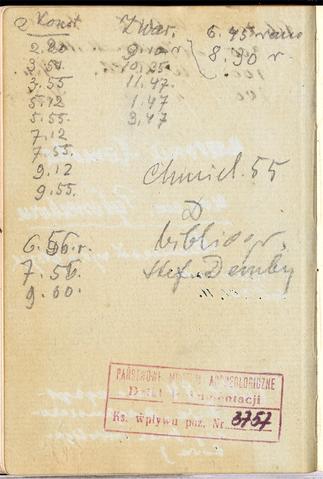 z Konst. Zwar. 6.45 rano
2.20 9.10 r 8.30 r.
3.51 10.25
3.55 11.47.
5.12 1.47
5.55. 3.47
7.12
7.55.
9.12
9.55.
Chmiel. 55
D
6.56 r. bibliogr.
7.56. Stef. Demby
9.00.
PAŃSTWOWE MUZEUM ARCHEOLOGICZNE
Dział Dokumentacji
Ks. wpływu poz. Nr. 3757